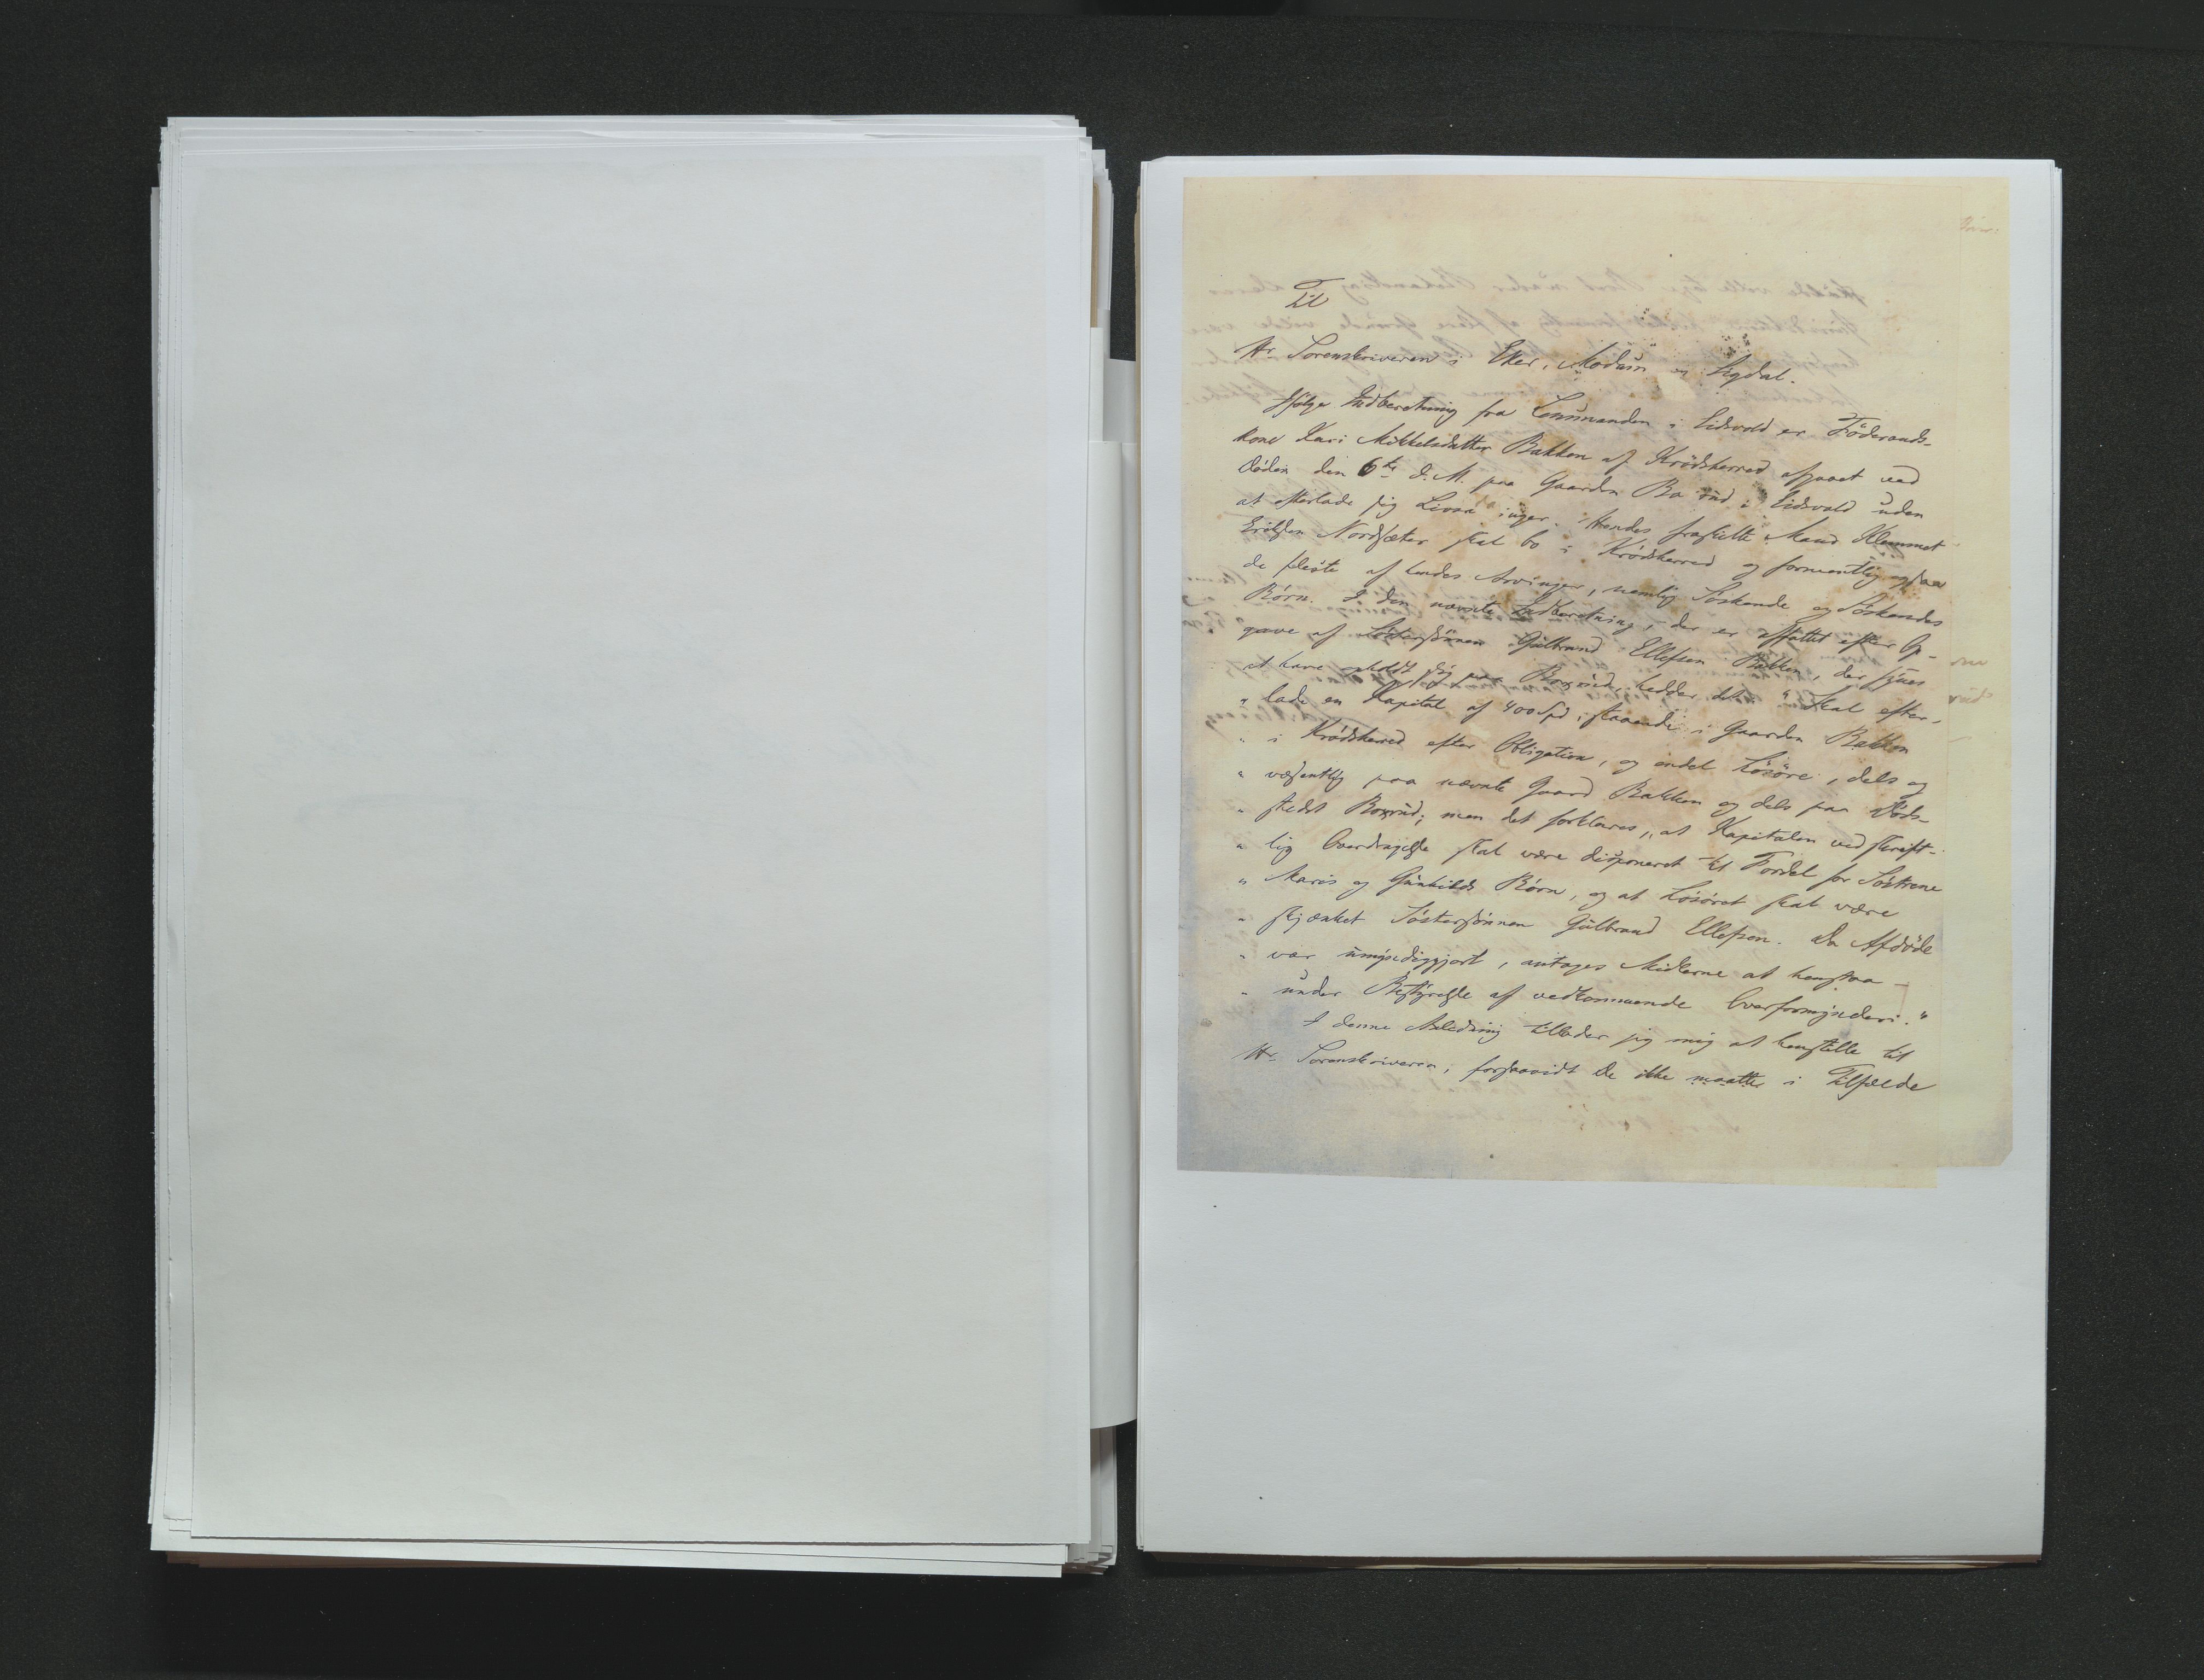 Til
Hr. Sorenskriveren i Eker, Modum og Sigdal.
Ifølge Indberetning fra Lensmanden i Eidsvold er Föderaads-
kone Kari Mikkelsdatter Bakken af Krödsherred afgaaet ved
Døden den 6te d. M. paa Gaarden Bo rud i Eidsvold uden
at efterlade sig Livsa inger. Hendes fraskilte Mand Klemmet
Eriksen Nordsæter skal bo i Krödsherred og formentlig ogsaa
de fleste af hendes Arvinger, nemlig Söskende og Söskendes
Börn. I den nævnte Indberetning, der er affattet efter Op-
gave af Söstersönnen Gulbrand Ellefsen Bakken, der synes
at have opholdt sig paa Boxrud, hedder det: "Skal efter-
" lade en Kapital af 400 Spd, staaende i Gaarden Bakken
" i Krödsherred efter Obligation, og endel Lösöre, dels og
" væsentlig paa nævnte Gaard Bakken og dels paa Döds-
" stedet Boxrud; men det forklares, at Kapitalen ved skrift-
" lig Overdragelse skal være disponeret til Fordel for Söstrene
" Maris og Gunhilds Börn, og at Lösöret skal være
" skjænket Söstersönnen Gulbrand Ellefsen. Da Afdöde
" var umyndiggjort, antages Midlerne at henstaa
" under Bestyrelse af vedkommende Overformynderi."
I denne Anledning tillader jeg mig at henstille til
Hr. Sorenskriveren, forsaavidt De ikke maatte i Tilfælde